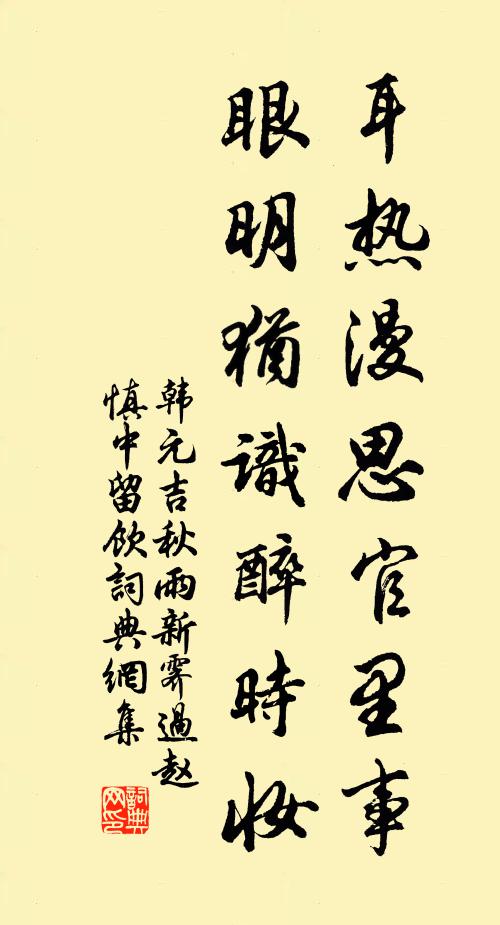 耳热漫思官里事
眼明猶識醉時妆
韩元吉秋雨新霽過赵
慎中留飲詞典網集
詞典
网印